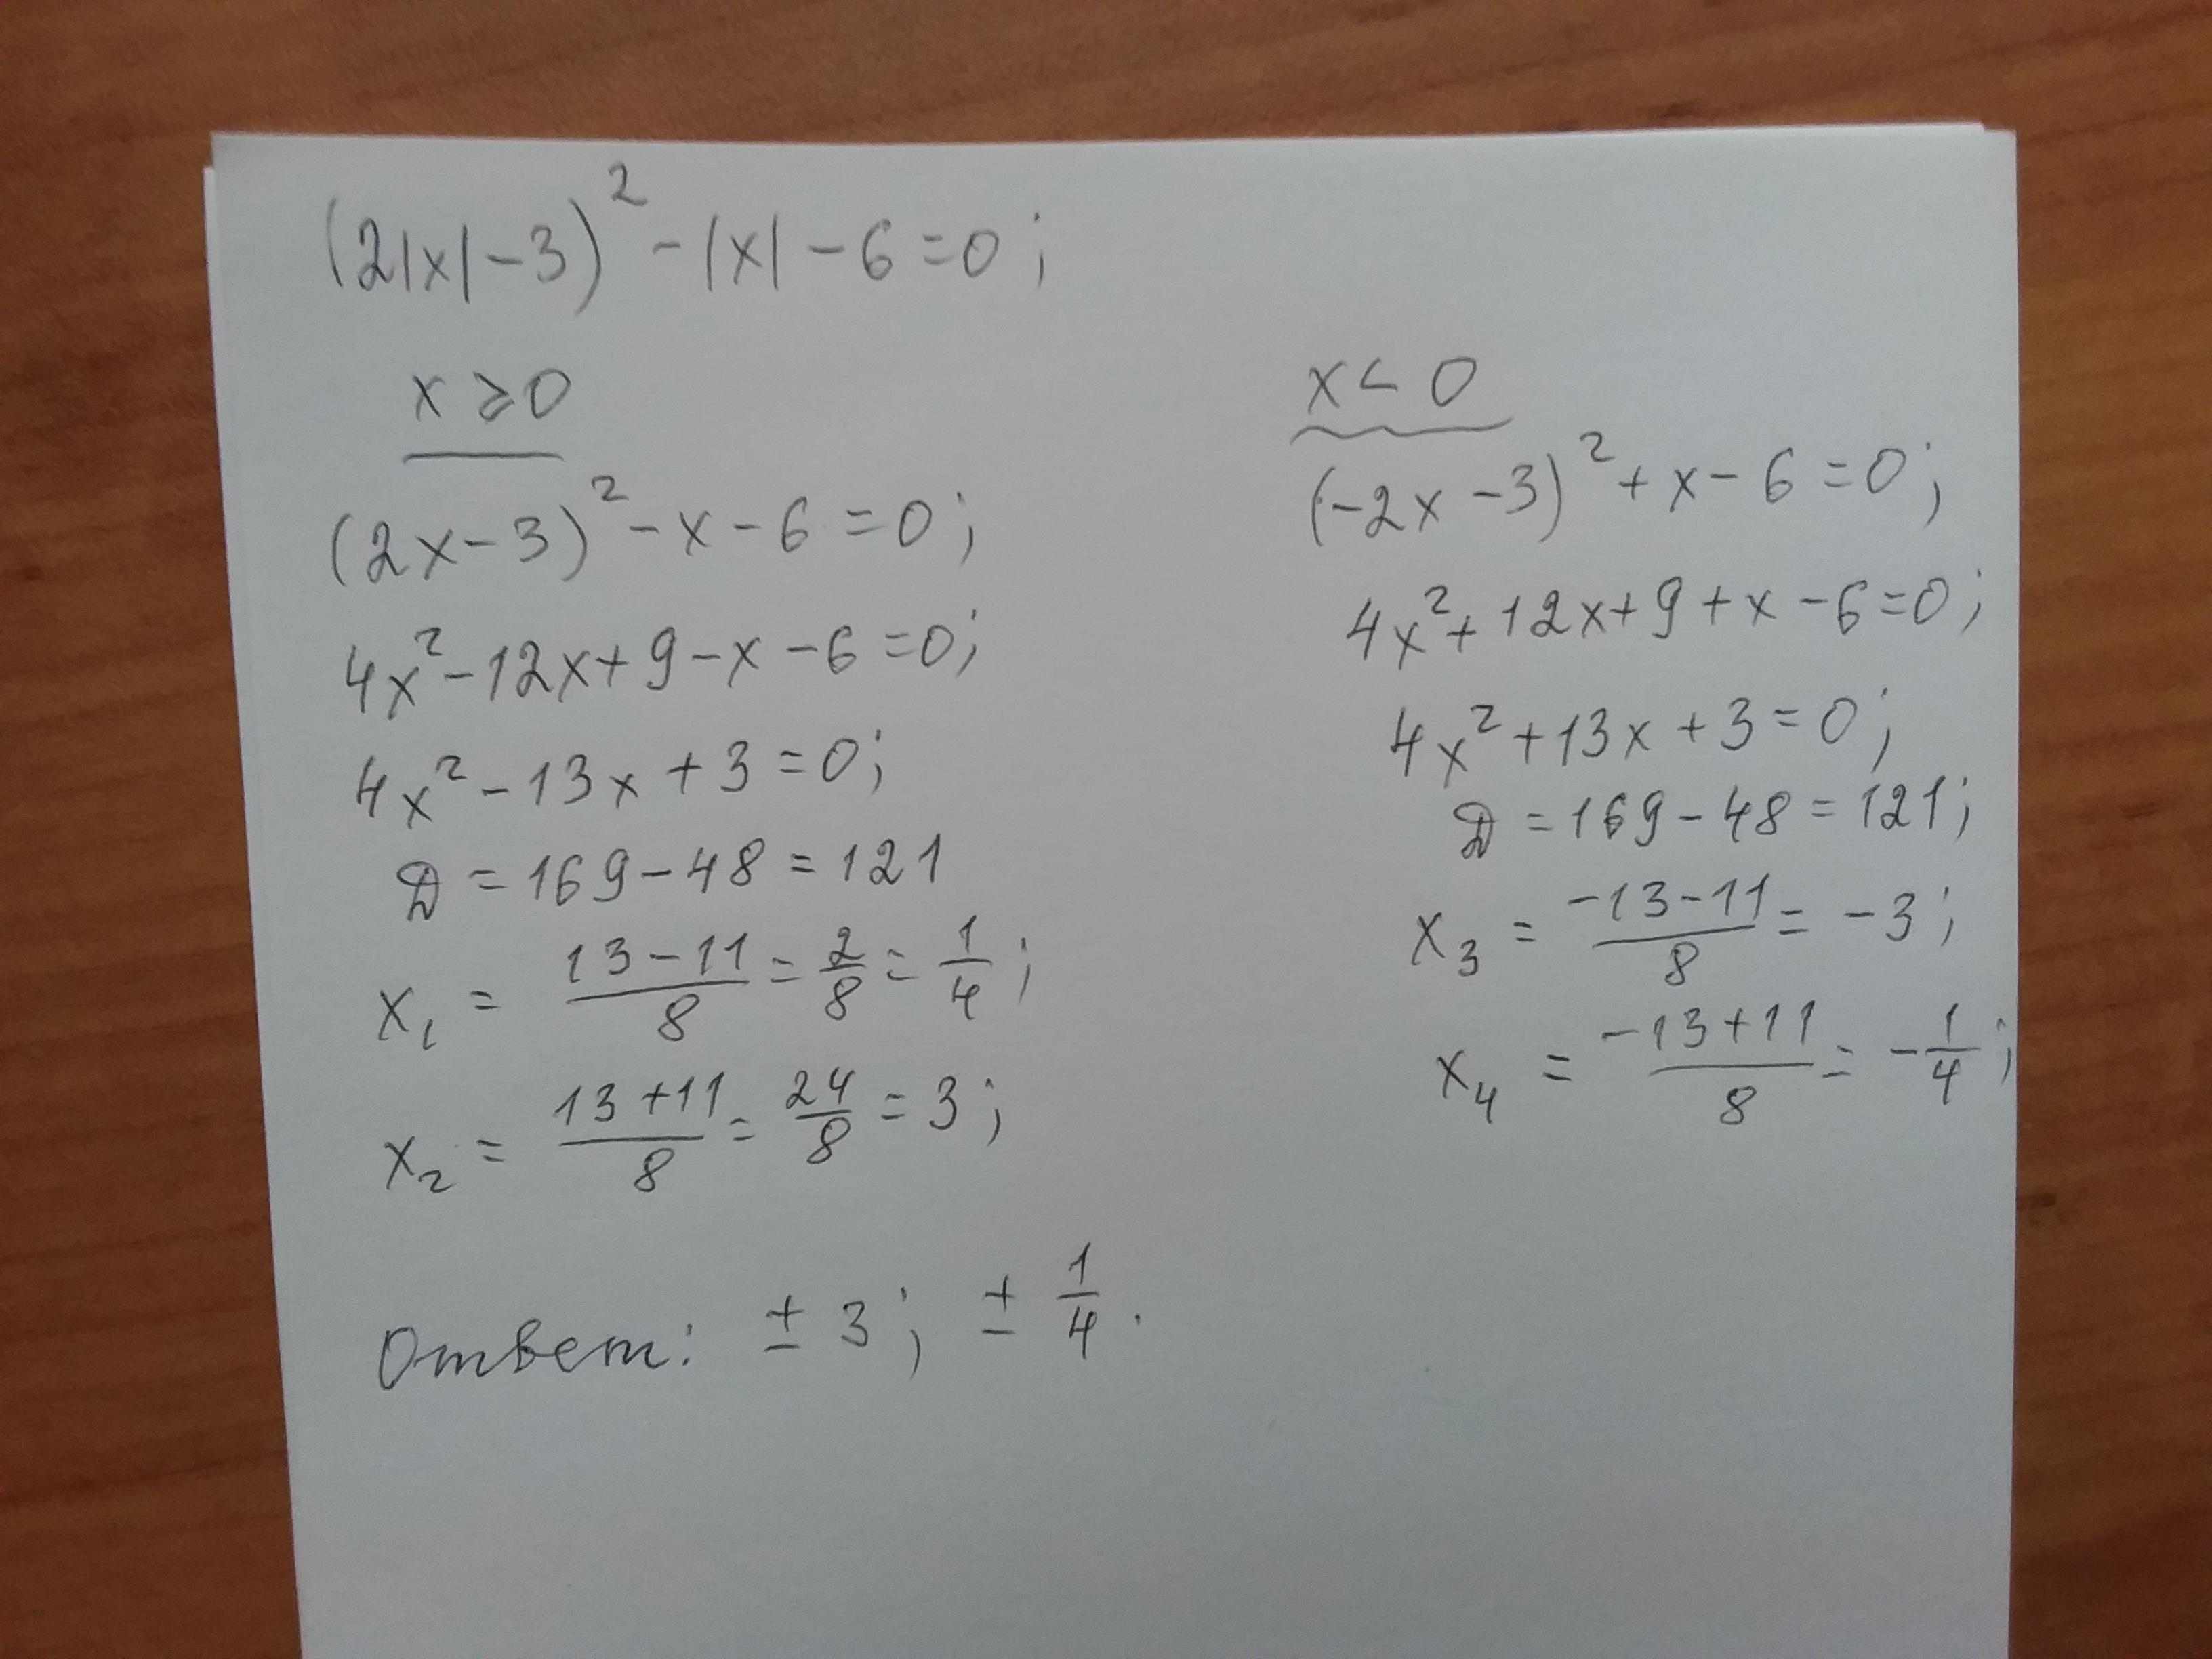 (2|x|-3)² - |x| - 6 = 0;
x ⩾ 0
(2x-3)² - x - 6 = 0;
4x² - 12x + 9 - x - 6 = 0;
4x² - 13x + 3 = 0;
D = 169 - 48 = 121
x₁ = (13-11)/8 = 2/8 = 1/4;
x₂ = (13+11)/8 = 24/8 = 3;
x < 0
(-2x-3)² + x - 6 = 0;
4x² + 12x + 9 + x - 6 = 0;
4x² + 13x + 3 = 0;
D = 169 - 48 = 121;
x₃ = (-13-11)/8 = -3;
x₄ = (-13+11)/8 = -1/4;
Ответ: ± 3; ± 1/4.